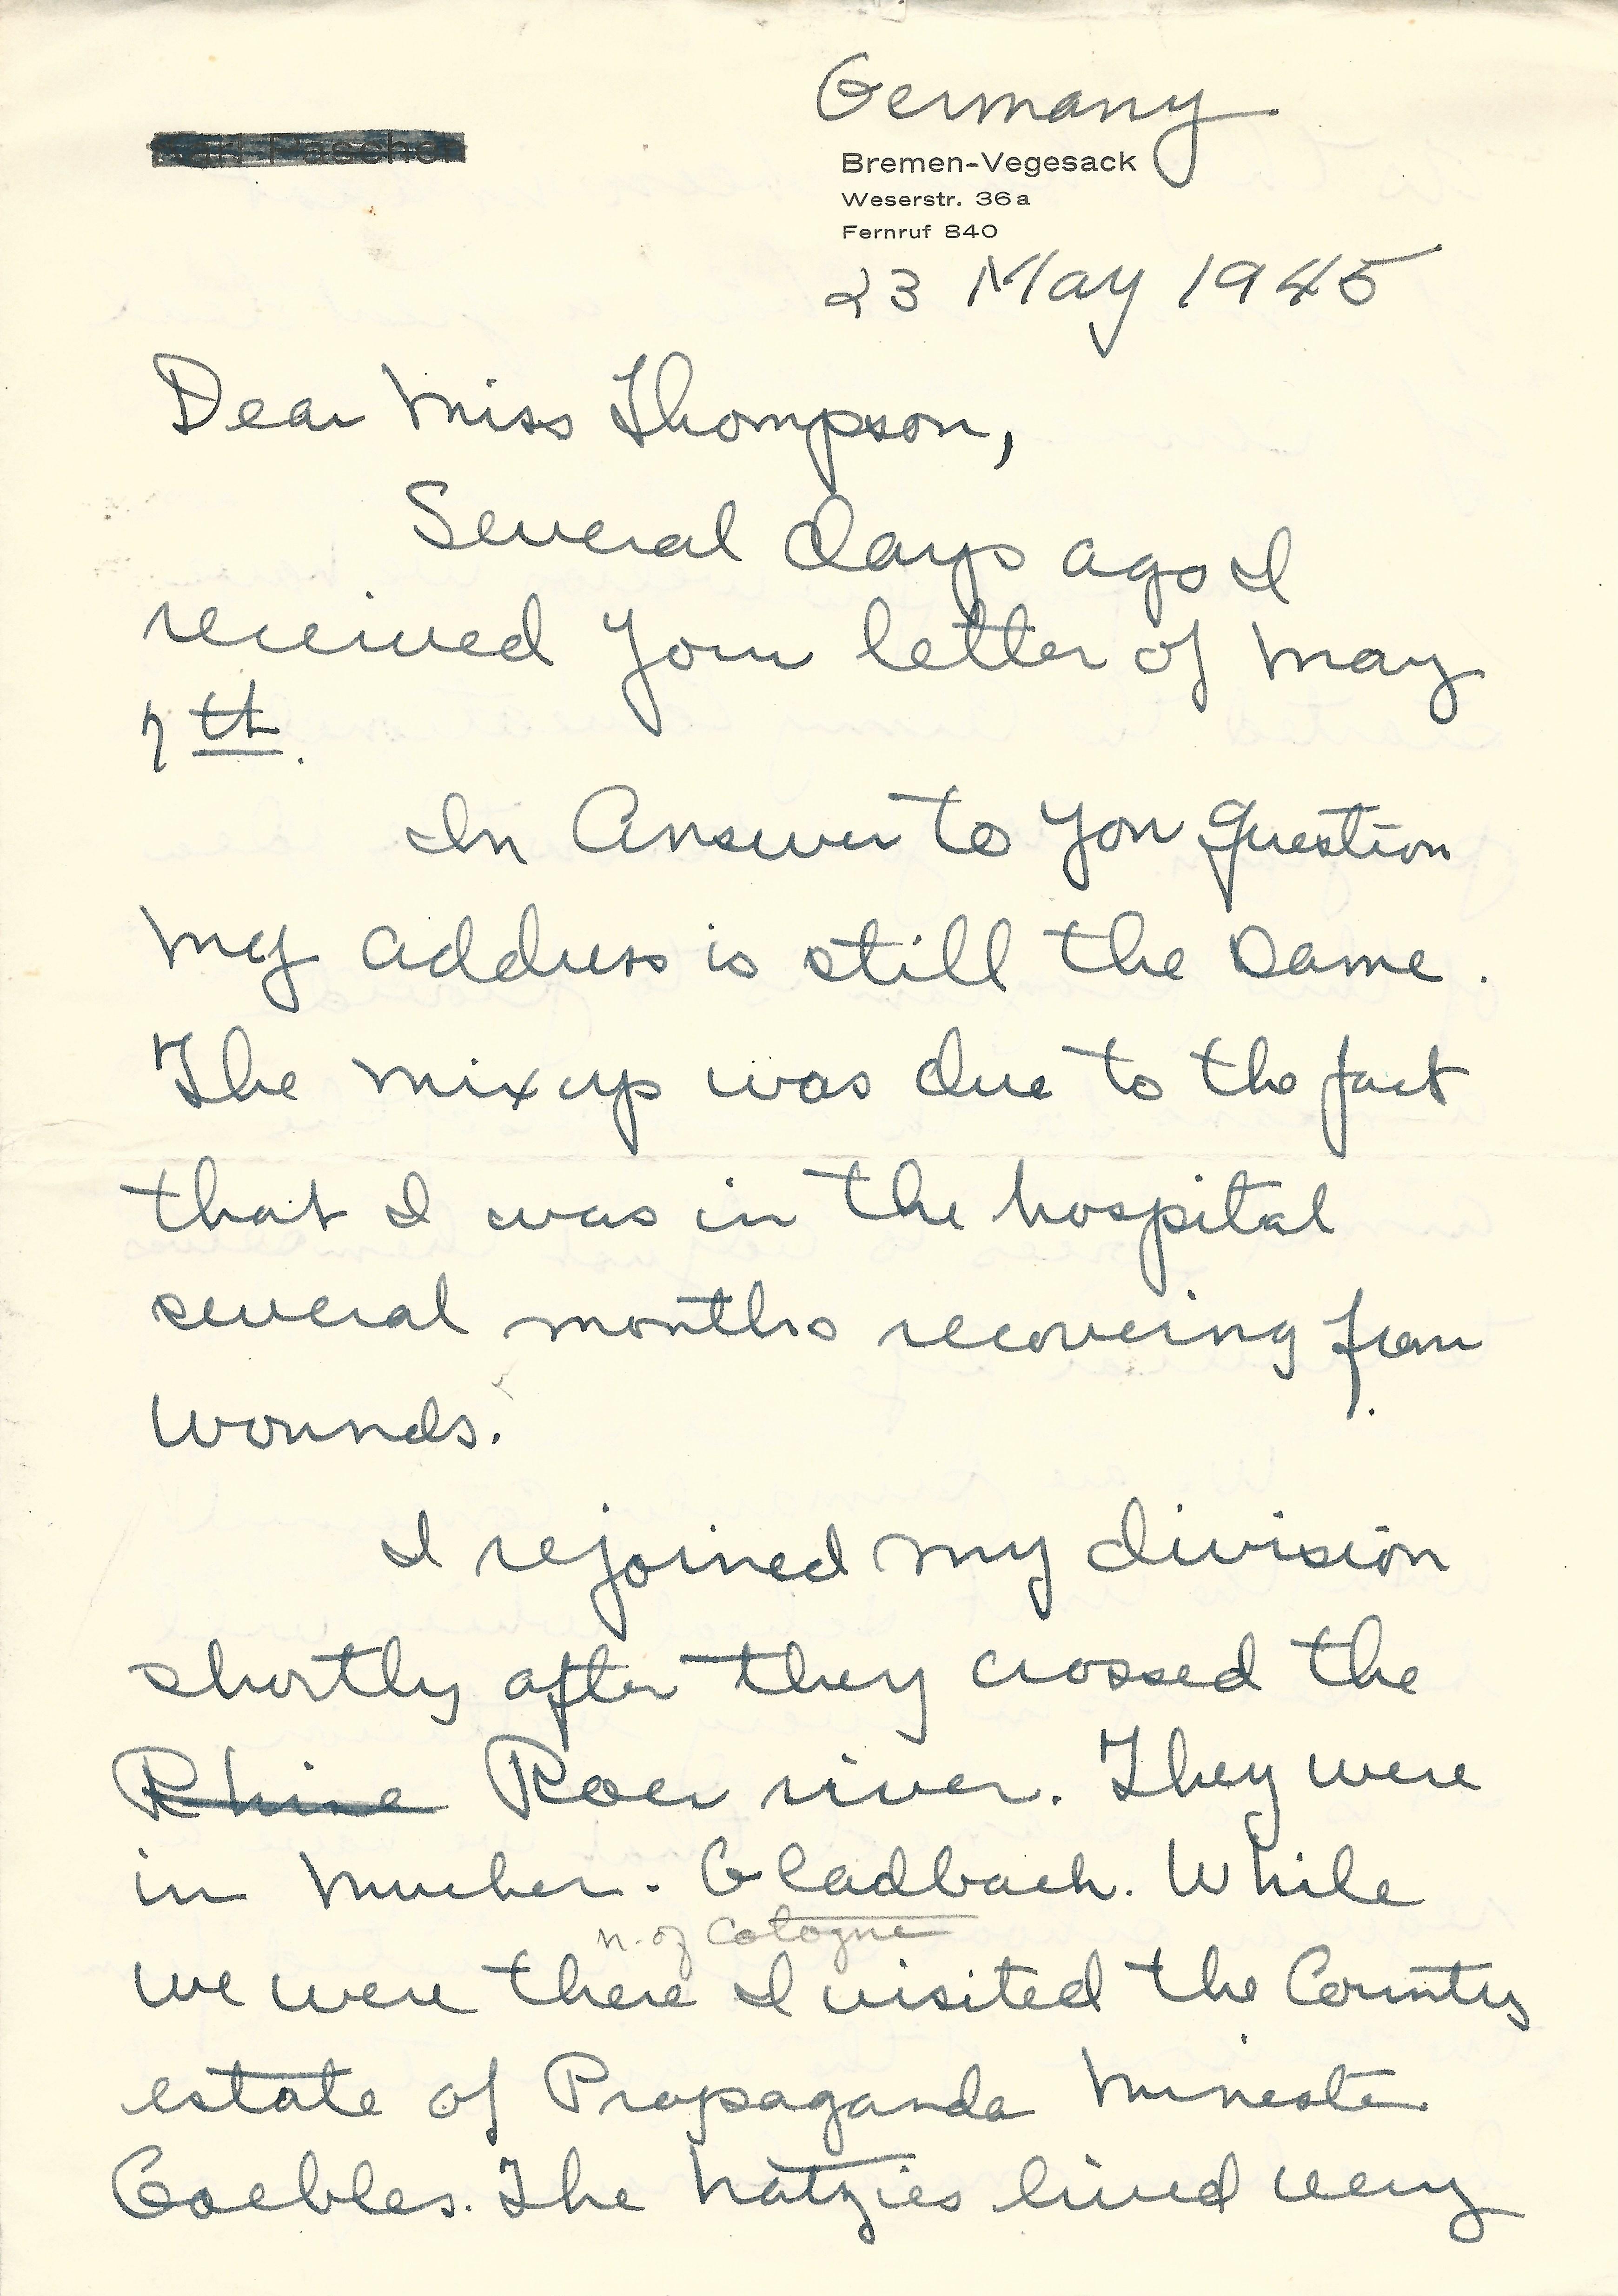 Germany
Bremen-Vegesack
Weserstr. 36a
Fernruf 840
23 May 1945
Dear Miss Thompson,
Several days ago I
received your letter of May
7th.
In Answer to your question
my address is still the same.
The mixup was due to the fact
that I was in the hospital
several months recovering from
wounds.
I rejoined my division
shortly after they crossed the
Rhine Roer river. They were
in Muchen. Gladbach. While
n. of Cologne
we were there I visited the Country
estate of Propaganda Minester
Goebles. The natzies lived very